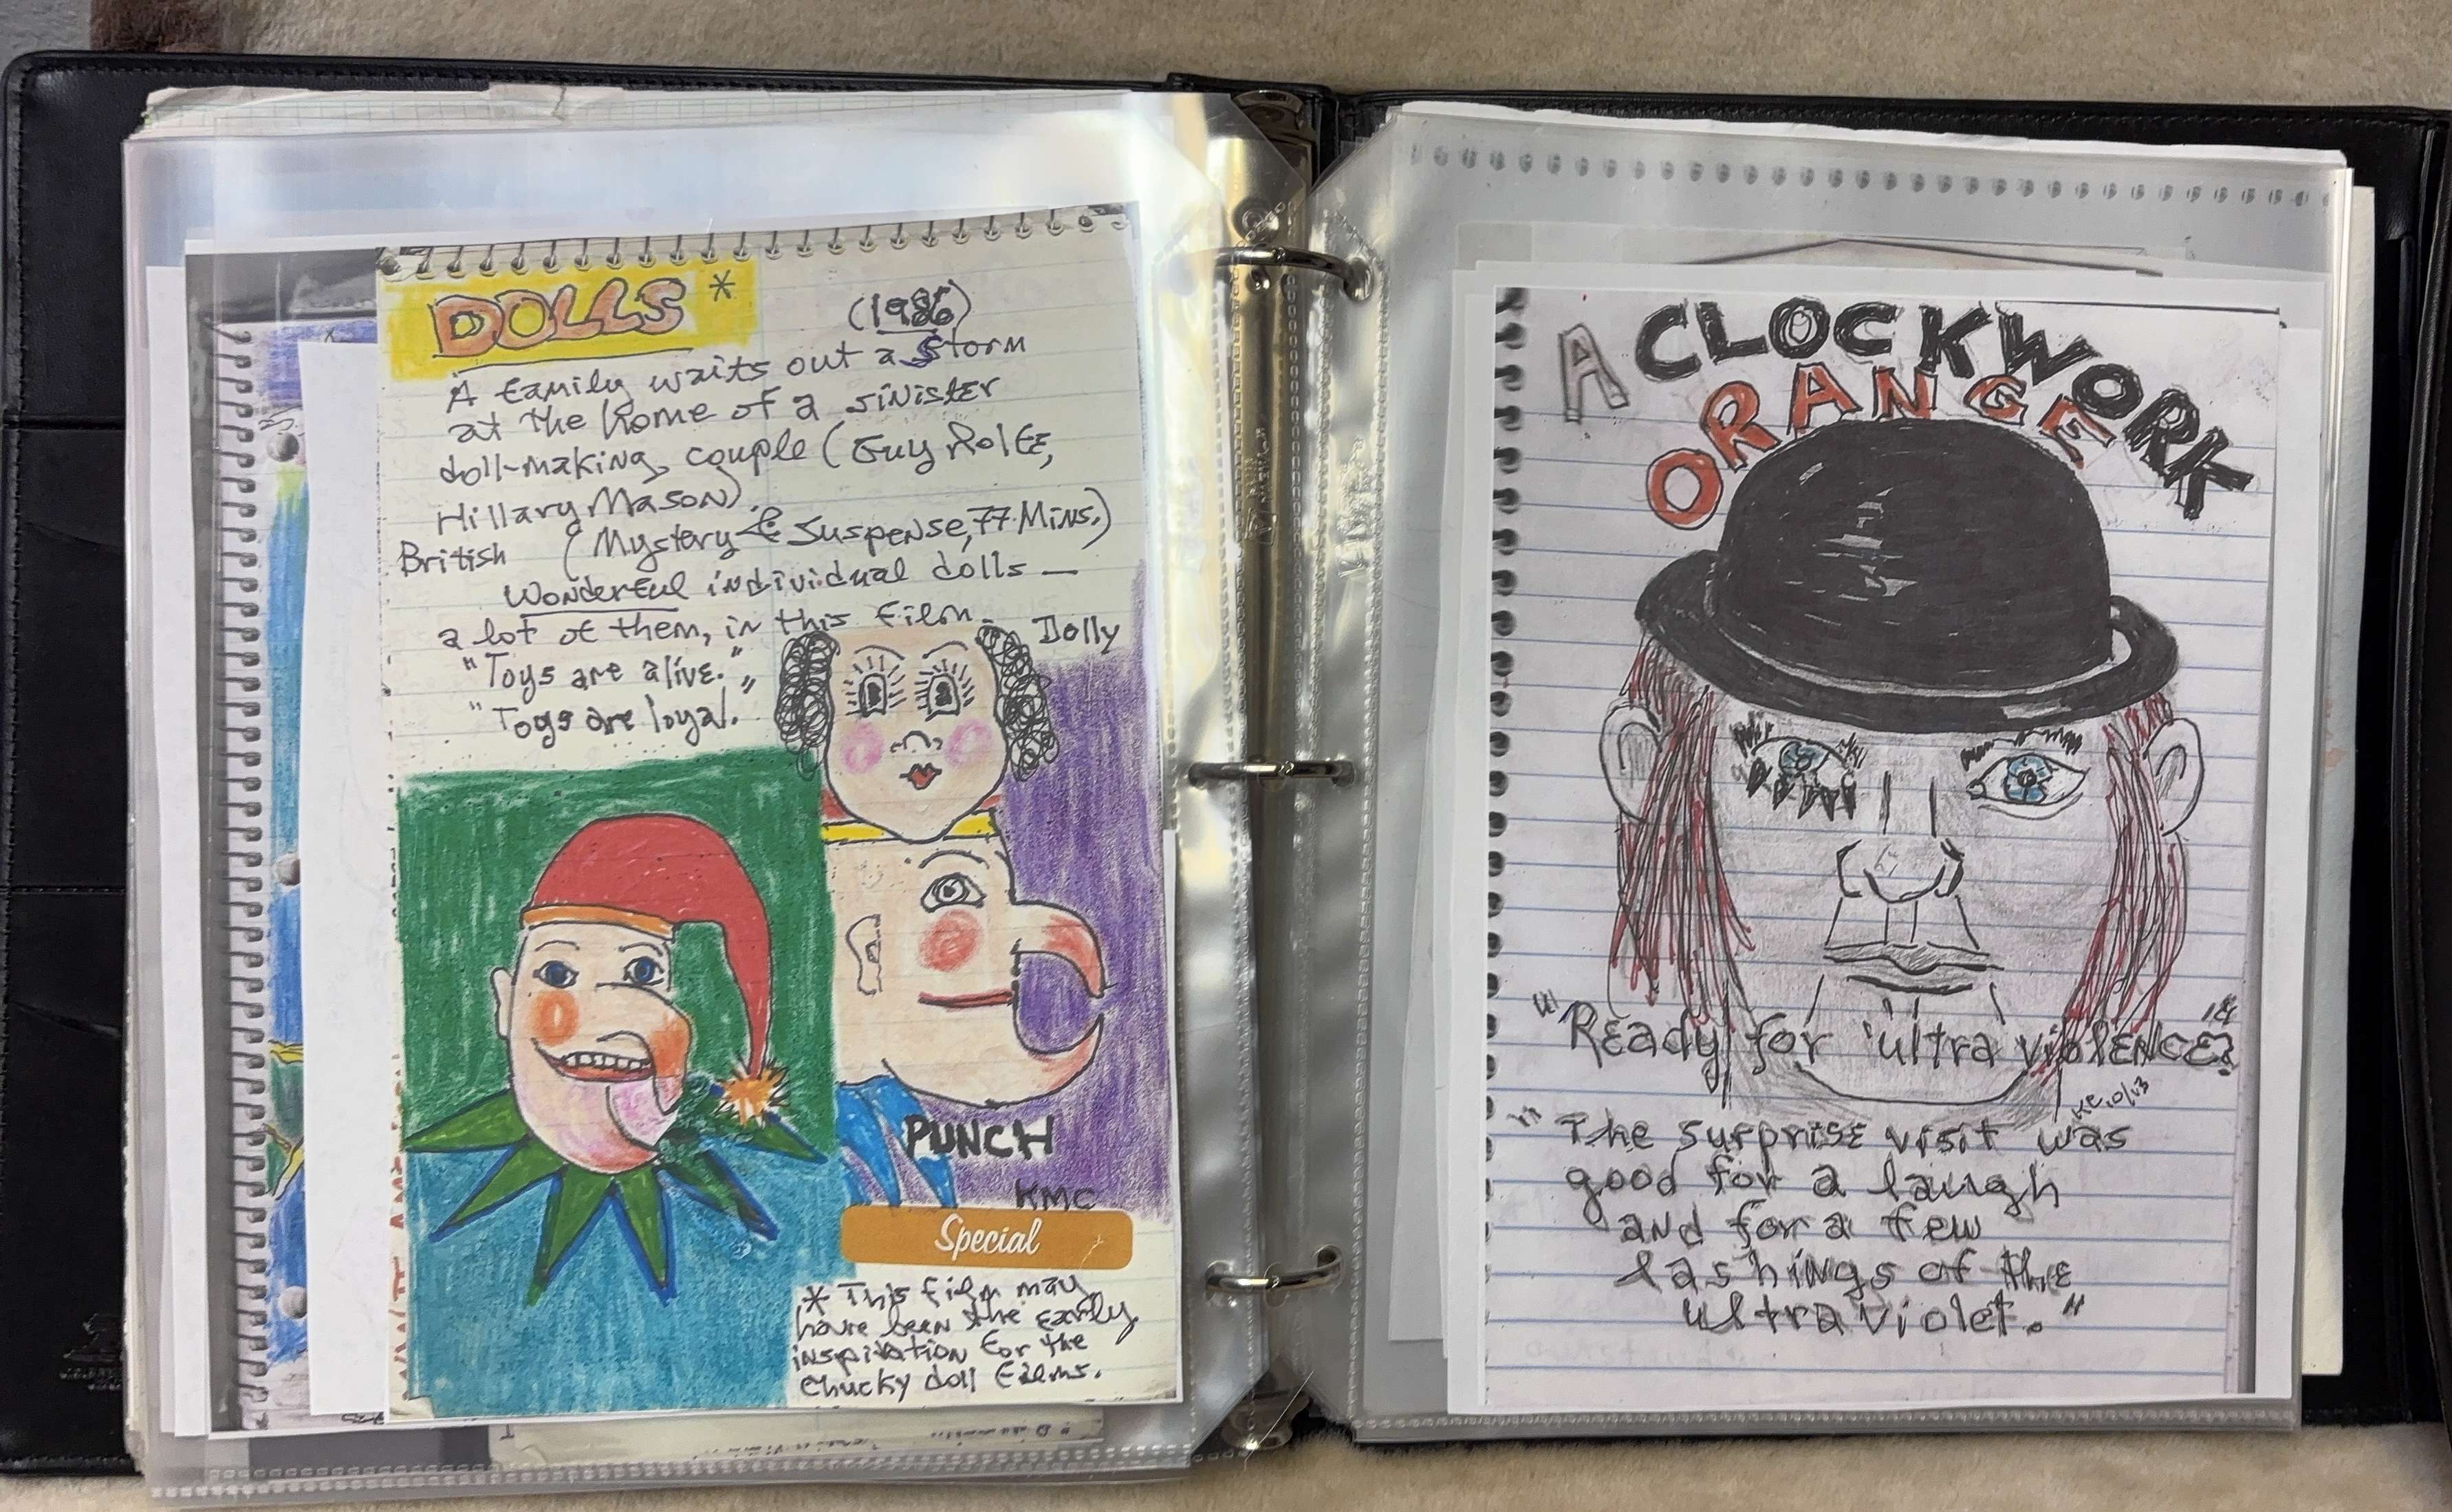 DOLLS *
(1986)
A family waits out a storm
at the home of a sinister
doll-making couple (Guy Rolfe,
Hillary Mason)
British (Mystery & Suspense, 77 Mins.)
Wonderful individual dolls —
a lot of them, in this film.
"Toys are alive."
"Toys are loyal."
Dolly
PUNCH
KMC
Special
* This film may
have been the early
inspiration for the
Chucky doll films.
A CLOCKWORK
ORANGE
"Ready for 'ultra violence'?"
KC 10/13
"The surprise visit was
good for a laugh
and for a few
lashings of the
ultra violet."